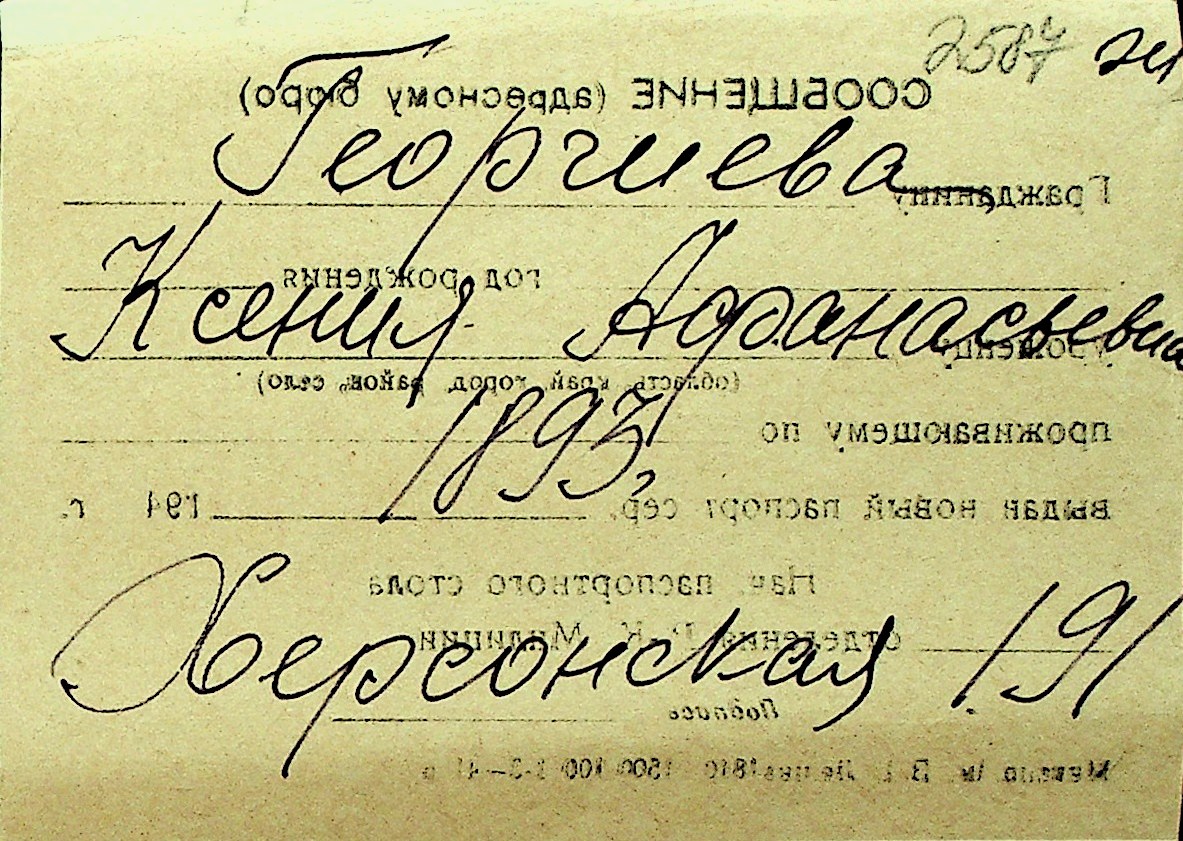 2587 эч
СООБЩЕНИЕ (адресному бюро)
Георгиева
Гражданину
Ксения Афанасьевна
год рождения
уроженцу
(область, край, город, район, село)
1893 г.
проживающему по
выдан новый паспорт сер. 194 г.
Нач. паспортного стола
отделения Р.-К. Милиции
Херсонская 191
Подпись